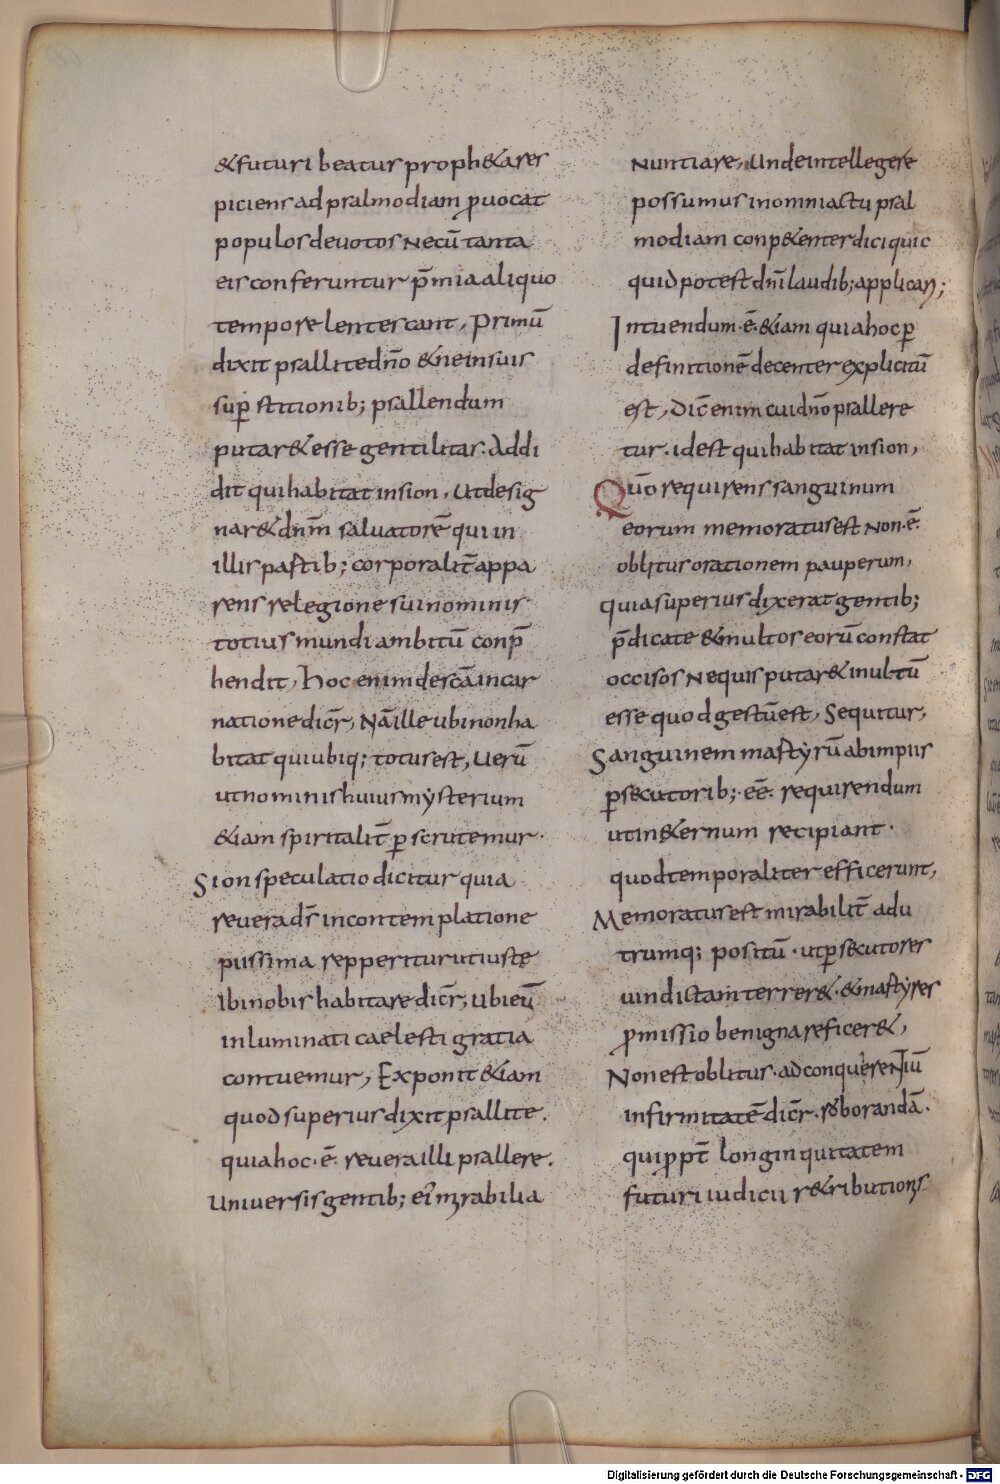 &futuri beatus proph&a res
piciens ad psalmodiam ꝓuocat
populos deuotos Necū tanta
eis conferuntur p̄mia aliquo
tempore lentescant, Primū
dixit psallite dn̄o &ne insuis
suꝑstitionib; psallendum
putar& esse gentilitas. Addi
dit qui habitat insion, Ut desig
nar& dnm̄ saluatorē qui in
illis partib; corporalit̄ appa
rens relegione sui nominis
totius mundi ambitū conp̄
hendit, Hoc enim de scā incar
natione dicr̄, Nā ille ubi non ha
bitat qui ubiq; totus est, Uerū
ut nominis huius mẏsterium
&iam spiritalit̄ ꝑscrutemur.
Sion speculatio dicitur quia
reuera ds̄ incontemplatione
piissima repperitur ut iuste
Ibi nobis habitare dicr̄; ubi eū
inluminati caelesti gratia
contuemur, Exponit &iam
quod superius dixit psallite.
quia hoc. ē. reuera illi psallere.
Uniuersis gentib; ei᾽ mirabilia
Nuntiare, Unde intellegere
possumus inomni actu psal
modiam conp&enter dici quic
quid potest dn̄i laudib; applicari;
Intuendum. ē. &iam quia hoc ꝑ
definitionē decenter explicitū
est, Dic̄ enim cui dn̄o psallere
tur. id est qui habitat insion,
Qūo requirens sanguinum
eorum memoratus est Non. ē.
oblitus orationem pauperum,
quia superius dixerat gentib;
p̄dicate & multos eorū constat
occisos Nequis putar& inultū
esse quod gestū est, Sequitur,
Sanguinem martẏrū ab impiis
ꝑsecutorib;. eē. requirendum
ut in&ernum recipiant.
quod temporaliter efficerunt,
Memoratus est mirabilit̄ adu
trumq; positū. ut ꝑsecutores
uindictam terrer&. & martẏres
ꝓmissio benigna reficer&,
Non est oblitus. ad conquerentiū
infirmitatē dicr̄. roborandā.
qui ꝓpt̄ longinquitatem
futuri iudicii r&ributionis